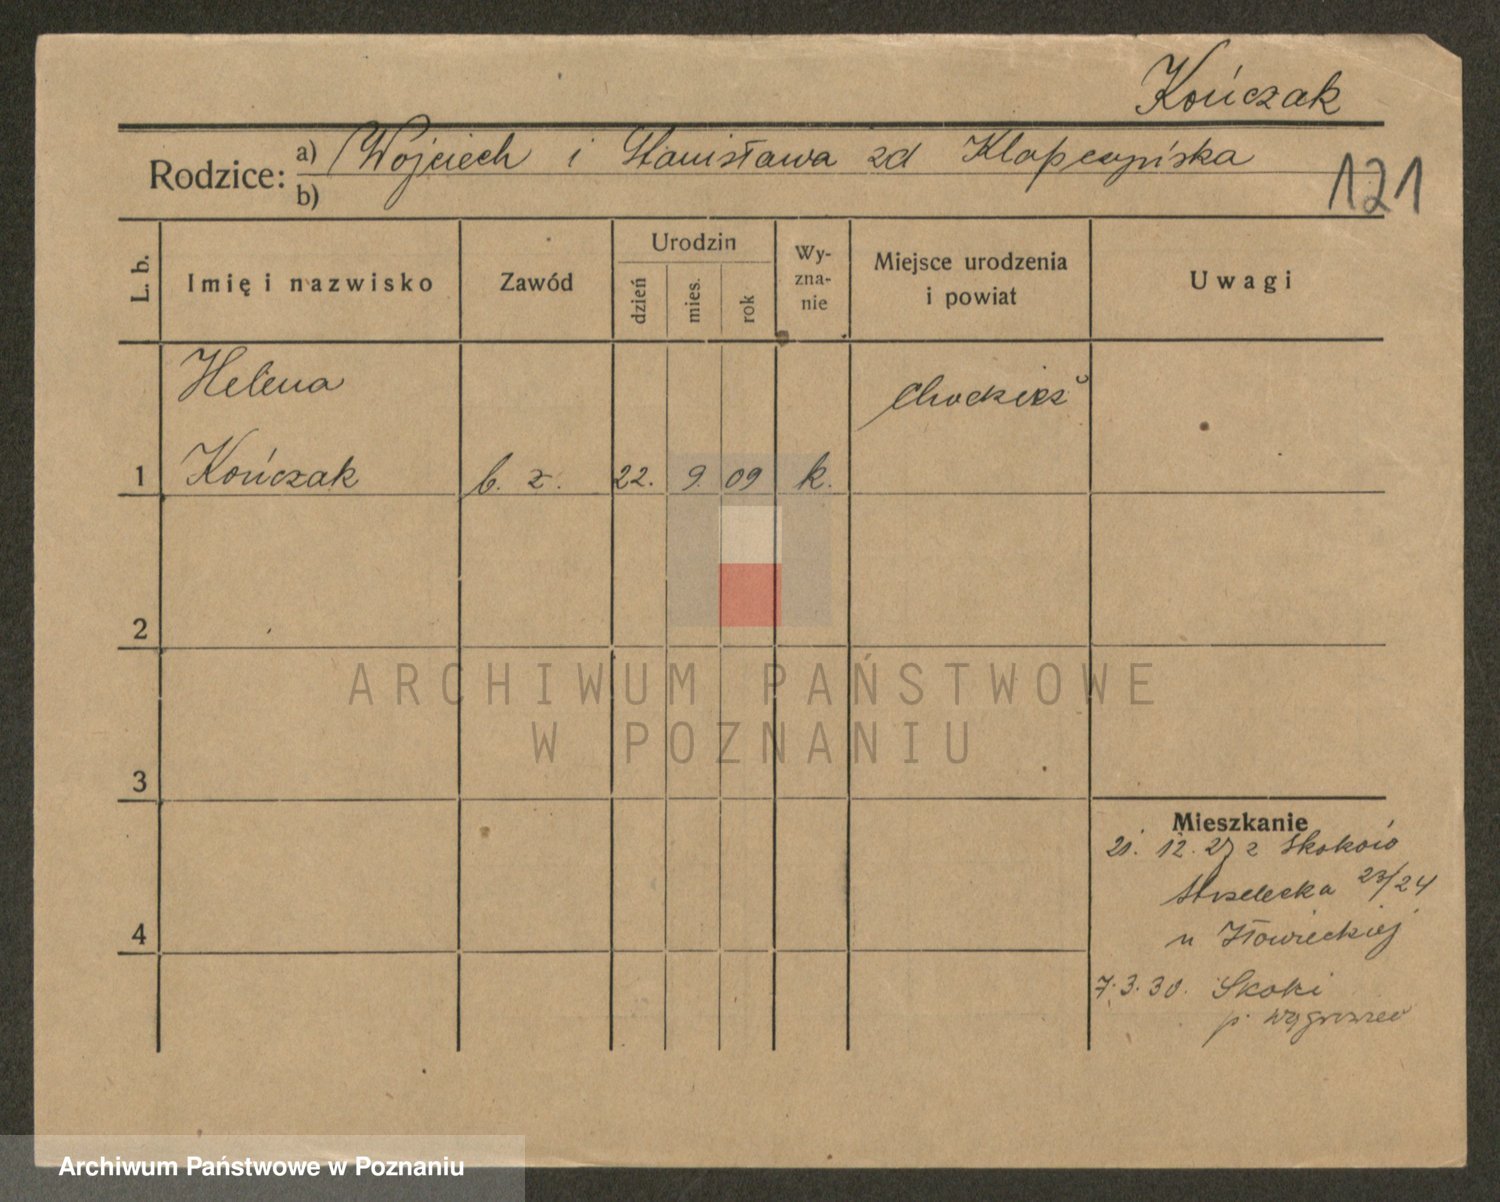 Kończak
Rodzice: a) Wojciech i Stanisława zd Klapczyńska
b)
121
L. b.
Imię i nazwisko
Zawód
Urodzin
dzień
mies.
rok
Wy-
zna-
nie
Miejsce urodzenia
i powiat
Uwagi
Helena
1 Kończak b. z. 22. 9. 09 k.
2
3
4
Mieszkanie
21. 12. 27 z Skoków
Strzelecka 23/24
u Iłowieckiej
7. 3. 30. Skoki
p. Wągrowiec
ARCHIWUM PAŃSTWOWE
W POZNANIU
Archiwum Państwowe w Poznaniu